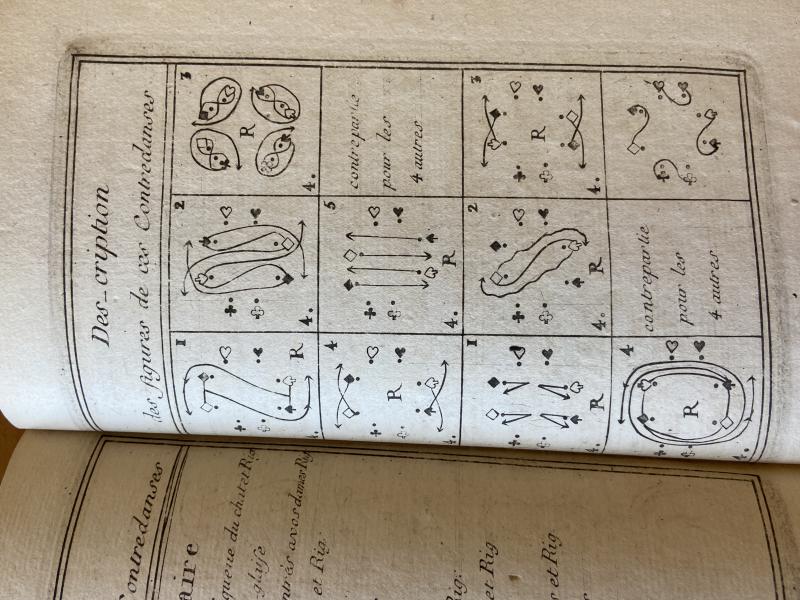 Contredanses
aire
queue du chat et Rig.
glaise
avos dames Rig.
et Rig.
Rig.
et Rig
et Rig
Des-cription
des figures de ces Contredanses
1 2 3
R R
4. 4. 4.
4 5
contrepartie
pour les
4 autres
R R
4. 4.
1 2 3
R R R
4. 4. 4.
4
contrepartie
pour les
4 autres
R